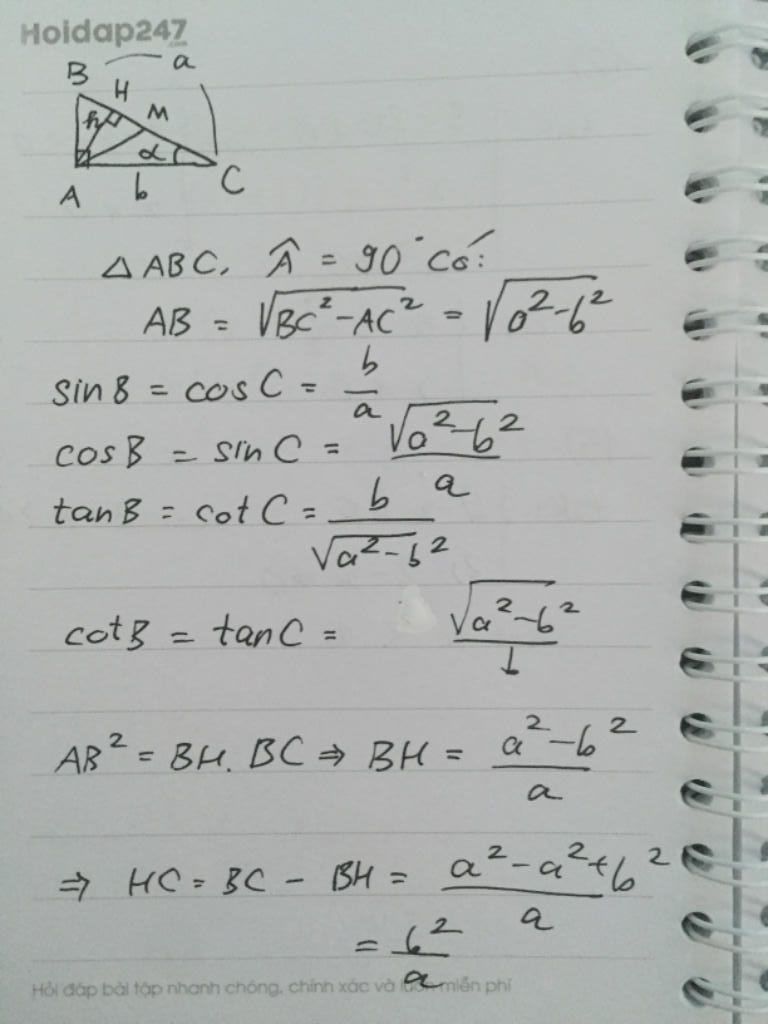 Hoidap247
.com
B a
H
M
h
α
A b C
△ABC, Â = 90° có:
AB = √(BC² - AC²) = √(a² - b²)
sinB = cosC = b/a
cosB = sinC = √(a² - b²)/a
tanB = cotC = b/√(a² - b²)
cotB = tanC = √(a² - b²)/b
AB² = BH. BC ⇒ BH = (a² - b²)/a
⇒ HC = BC - BH = (a² - a² + b²)/a
= b²/a
Hỏi đáp bài tập nhanh chóng, chính xác và luôn miễn phí